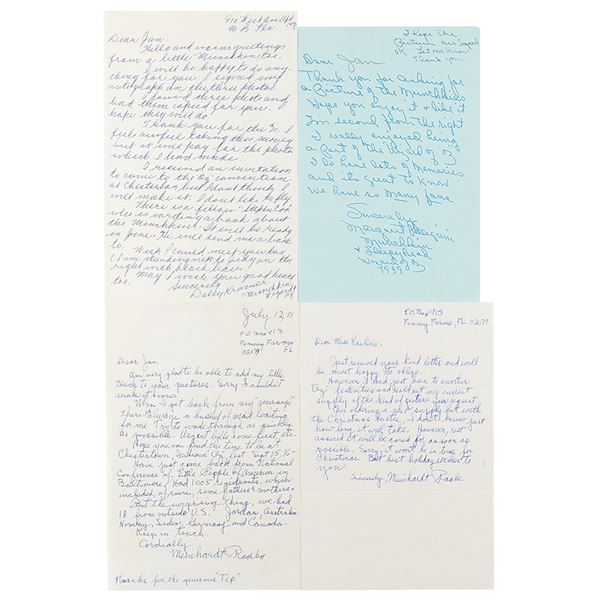 910 West Ave Apt
M B Fla
Dear Jan.
Hello and warm greetings
from a little Munchkin too.
I will be happy to do any-
thing for you. I signed my
autograph on the three photos
I found three photo and
had them copied for you. I
hope they will do.
Thank you for the $10. I
feel awful taking this money
but it will pay for the photos
which I had made.
I received an invitation
to come to the Oz convention
at Chesterton, but I dont think I
will make it. I dont like to fly.
There is a fellow Stephen Cox
who is writing a book about
the Munchkins. It will be ready
in June. He will send me a book
to.
Wish I could meet you too.
I am standing next to Judy on the
right with black hair!
May I wish you good health
too.
Sincerely
Dolly Kramer
Munchkin
I Hope The
Pictures are Signed
OK Let me know
Thank you
Dear Jan
Thank you for asking for
a Picture of the Munchkins
Hope you enjoy it & like it
I'm second from the right
I really enjoyed being
a part of the Wizard of Oz
I do have lots of Memories
and its great to know
we have so many fans
Sincerely
Margaret Pellegrini
Munchkin
& Sleepyhead
Wizard of Oz
1939
July 12, 89
P.O. Box 415
Penney Farms
FL
32079
Dear Jan:
Am very glad to be able to add my little
touch to your pictures. Sorry I couldn't
make it sooner.
When I get back from my "journeys"
there's always a bushel of mail waiting
for me. Try to wade through as quickly
as possible. Urgent bills come first, etc.
Hope you can find the time to be at
Chesterton, Indiana Oz fest Sept 15, 16-
Have just come back from National
Conference of Little People of America in
Baltimore, Had 1005 registrants, which
included, of course, some fathers & mothers.
But the surprising thing, we had
18 from outside U.S. Jordan, Australia
Norway, Sweden, Germany and Canada.
Keep in touch.
Cordially
Meinhardt Raabe
Thanks for the generous "Tip"
P.O. Box 415
Penney Farms, FL 32079
Dear Miss
Just received your kind letter and will
be most happy to oblige.
However I had just been to another
"Oz" festivities and sold out my current
supply of the kind of picture you request.
Am ordering a new supply but with
the Christmas bustle, I don't know just
how long it will take. However, rest
assured it will be cared for as soon as
possible. Sorry it won't be in time for
Christmas. But best holiday wishes to
you.
Sincerely, Meinhardt Raabe